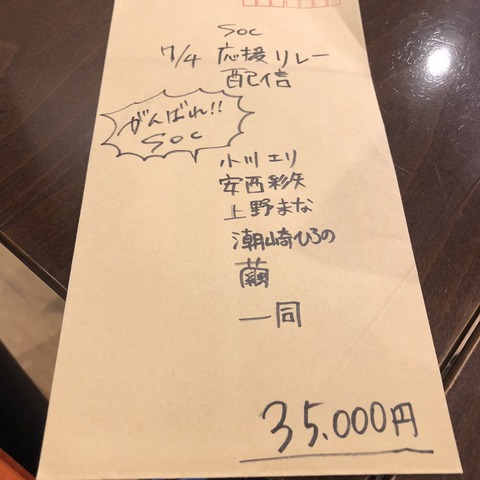 SOC
7/4 応援リレー
配信
がんばれ!!
SOC
小川エリ
安西彩矢
上野まな
潮崎ひろの
繭
一同
35,000円